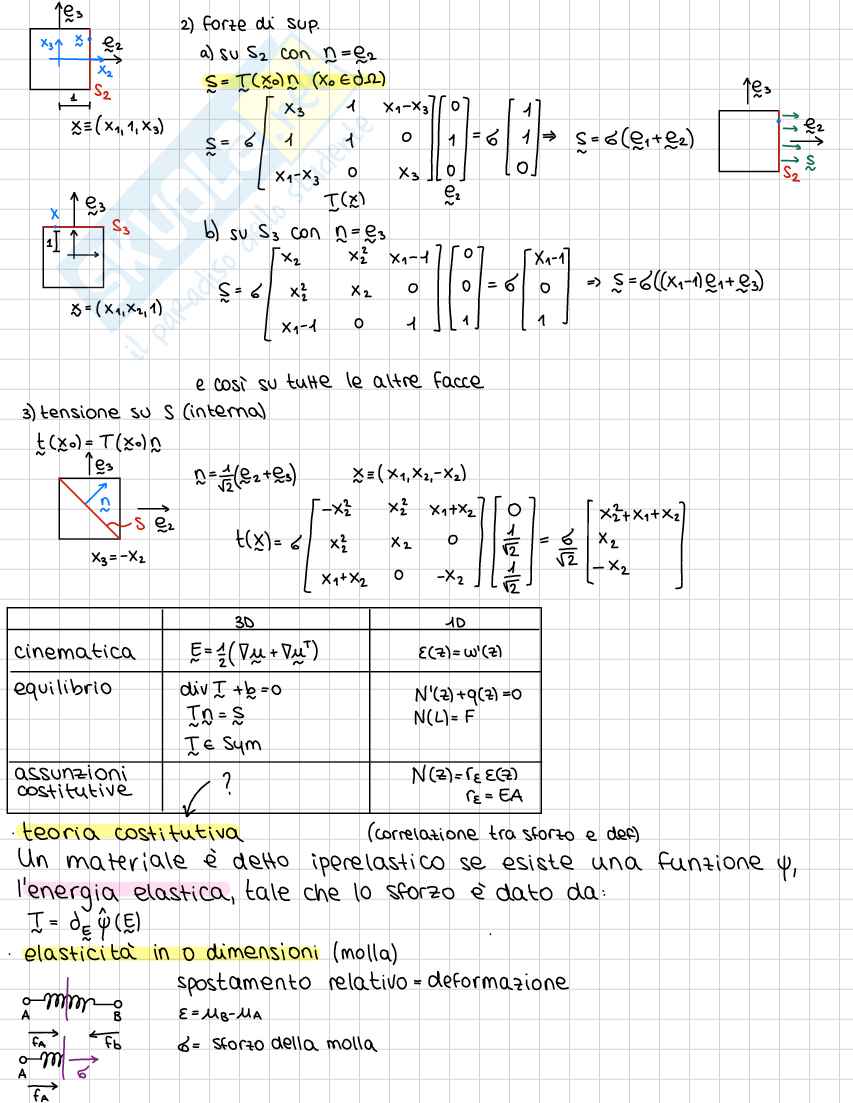 2) forze di sup.
a) su S₂ con n = e₂
s = T(x₀)n (x₀ ∈ ∂Ω)
e₃
x₃
x
e₂
x₂
S₂
1
x ≡ (x₁, 1, x₃)
s = σ [ x₃ 1 x₁-x₃ ; 1 1 0 ; x₁-x₃ 0 x₃ ] [ 0 ; 1 ; 0 ] = σ [ 1 ; 1 ; 0 ] ⇒ s = σ(e₁+e₂)
T(x) e₂
e₃
e₂
s
S₂
e₃
x
S₃
1
x = (x₁, x₂, 1)
b) su S₃ con n = e₃
s = σ [ x₂ x₂² x₁-1 ; x₂² x₂ 0 ; x₁-1 0 1 ] [ 0 ; 0 ; 1 ] = σ [ x₁-1 ; 0 ; 1 ] ⇒ s = σ((x₁-1)e₁+e₃)
SKUOLA.NET
il paradiso dello studente
e così su tutte le altre facce
3) tensione su S (interna)
t(x₀) = T(x₀)n
e₃
n
S
e₂
x₃ = -x₂
n = 1/√2 (e₂+e₃) x ≡ (x₁, x₂, -x₂)
t(x) = σ [ -x₂² x₂² x₁+x₂ ; x₂² x₂ 0 ; x₁+x₂ 0 -x₂ ] [ 0 ; 1/√2 ; 1/√2 ] = σ/√2 [ x₂²+x₁+x₂ ; x₂ ; -x₂ ]
3D 1D
cinematica E = 1/2 (∇u + ∇uᵀ) ε(z) = w'(z)
equilibrio div T + b = 0 N'(z) + q(z) = 0
Tn = s N(L) = F
T ∈ Sym
assunzioni costitutive ? N(z) = r_E ε(z)
r_E = EA
· teoria costitutiva (correlazione tra sforzo e def)
Un materiale è detto iperelastico se esiste una funzione ψ,
l'energia elastica, tale che lo sforzo è dato da:
T = ∂_E ψ̂(E)
· elasticità in 0 dimensioni (molla)
spostamento relativo = deformazione
A B
ε = u_B - u_A
f_A f_b
σ = sforzo della molla
A σ
f_A